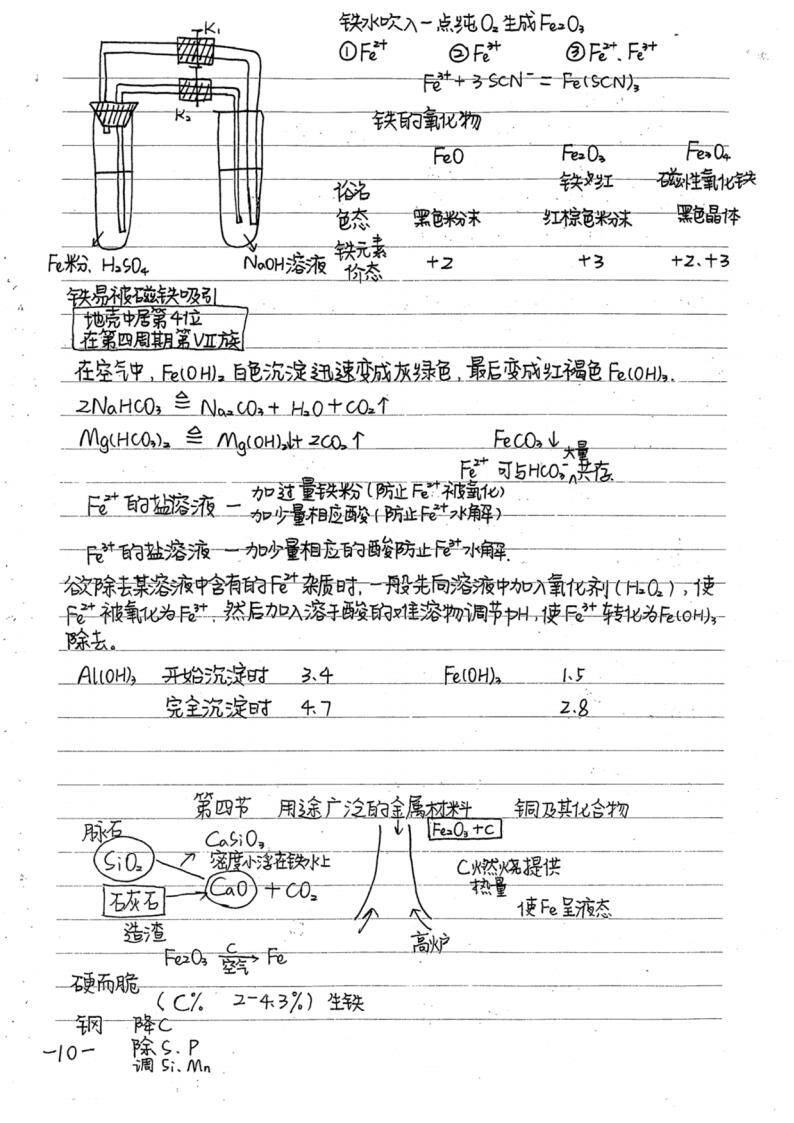 K₁
K₂
Fe粉、H₂SO₄
NaOH溶液
铁水吹入一点纯O₂生成Fe₂O₃
①Fe²⁺ ②Fe³⁺ ③Fe²⁺、Fe³⁺
Fe³⁺+3SCN⁻=Fe(SCN)₃
铁的氧化物
FeO Fe₂O₃ Fe₃O₄
俗名 铁红 磁性氧化铁
色态 黑色粉末 红棕色粉末 黑色晶体
铁元素价态 +2 +3 +2、+3
铁易被磁铁吸引
地壳中居第4位
在第四周期第VII族
在空气中,Fe(OH)₂白色沉淀迅速变成灰绿色,最后变成红褐色Fe(OH)₃.
2NaHCO₃ ≙ Na₂CO₃+H₂O+CO₂↑
Mg(HCO₃)₂ ≙ Mg(OH)₂↓+2CO₂↑ FeCO₃↓
Fe²⁺可与HCO₃⁻大量共存.
Fe²⁺的盐溶液 — 加过量铁粉(防止Fe²⁺被氧化)
加少量相应酸(防止Fe²⁺水解)
Fe³⁺的盐溶液 — 加少量相应的酸防止Fe³⁺水解.
欲除去某溶液中含有的Fe²⁺杂质时,一般先向溶液中加入氧化剂(H₂O₂),使
Fe²⁺被氧化为Fe³⁺,然后加入溶于酸的难溶物调节pH,使Fe³⁺转化为Fe(OH)₃
除去。
Al(OH)₃ 开始沉淀时 3.4 Fe(OH)₃ 1.5
完全沉淀时 4.7 2.8
第四节 用途广泛的金属材料 铜及其化合物
脉石
SiO₂
CaSiO₃
密度小浮在铁水上
石灰石
CaO + CO₂
造渣
Fe₂O₃+C
C燃烧提供
热量
使Fe呈液态
高炉
Fe₂O₃ C 空气→ Fe
硬而脆
(C% 2-4.3%)生铁
钢 降C
除S、P
调Si、Mn
-10-